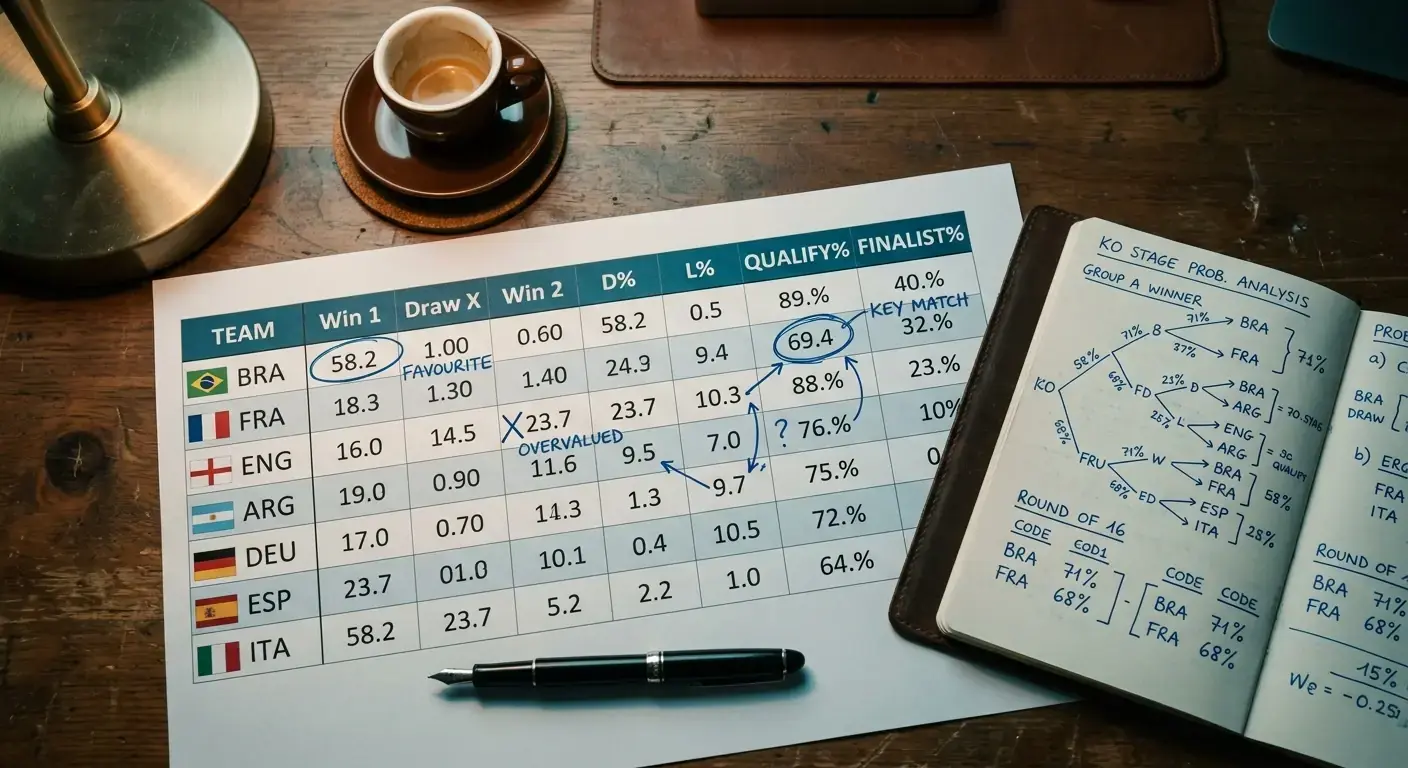 TEAM Win 1 Draw X Win 2 D% L% QUALIFY% FINALIST%
BRA 58.2 1.00 0.60 58.2 0.5 89.% 40.%
FAVOURITE
KEY MATCH
FRA 18.3 1.30 1.40 24.9 9.4 69.4 32.%
ENG 16.0 14.5 X 23.7 23.7 10.3 88.% 23.%
OVERVALUED
ARG 19.0 0.90 11.6 9.5 7.0 ? 76.% 10%
DEU 17.0 0.70 14.3 1.3 9.7 75.% 0.
ESP 23.7 01.0 10.1 0.4 10.5 72.%
ITA 58.2 23.7 5.2 2.2 1.0 64.%
KO STAGE PROB. ANALYSIS
GROUP A WINNER
KO
58%
68%
71% B
71% BRA
37% FRA
71%
68% FD
23% D
BRA
ARG
25% L
ENG
ARG
QUALIFY
FRU
71% W
BRA
FRA
58%
68% ED
ESP
ITA
28%
ROUND OF 16
CODE COD1
BRA 71%
FRA 68%
-
CODE CODE
BRA 71%
FRA 68%
PROB
a) C
BRA
DRAW
b) ERG
FRA
ITA
ROUND OF
BRA 71%
FRA 68%
15%
We = -0.25